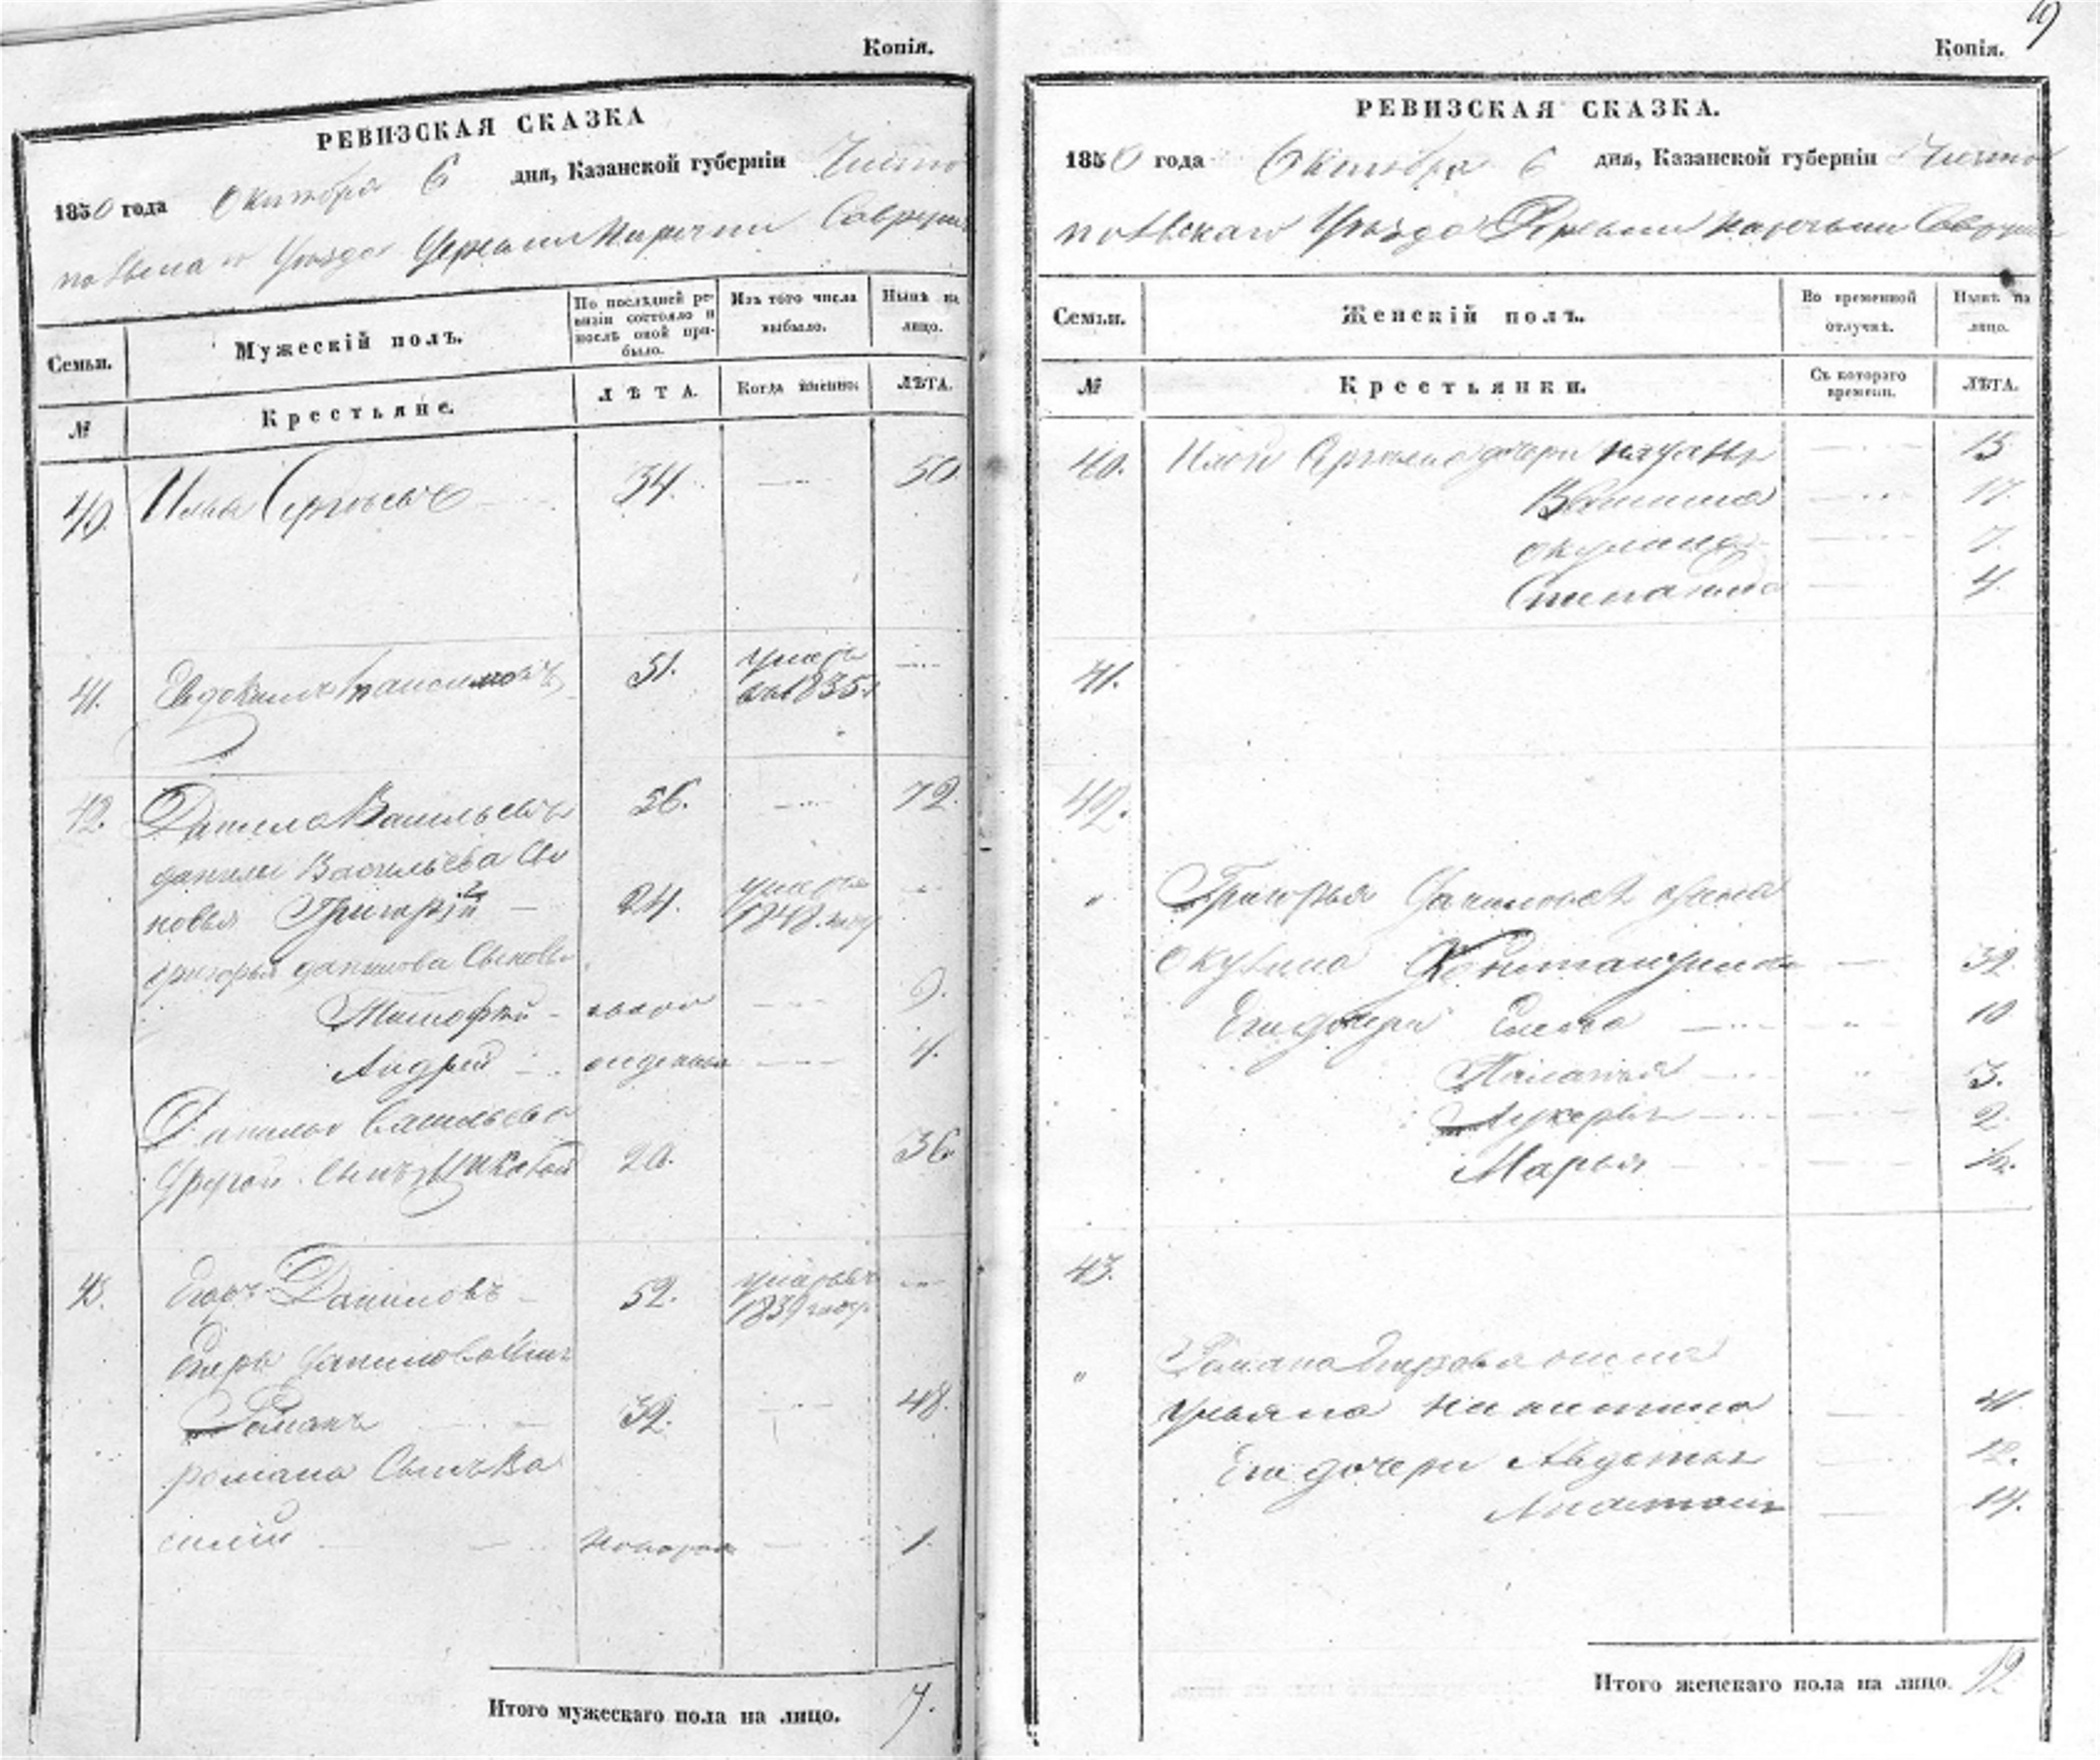 Копія.
РЕВИЗСКАЯ СКАЗКА
1850 года Октября 6 дня, Казанской губерніи Чисто
польскаго Уѣзда Деревни
Семьи.
Мужескій полъ.
По послѣдней ре-
визіи состояло и
послѣ оной при-
было.
Изъ того числа
выбыло.
Нынѣ на
лицо.
№
Крестьяне.
ЛѢТА.
Когда именно.
ЛѢТА.
40. Илья Сергѣевъ 34. 50
41. Евдокимъ 51. умеръ
въ 1835
42. Данило Васильевъ 56. 72.
Данилы Васильева Сы
новья Григорій 24. умеръ
1848 году
Григорья Данилова Сыновья
Тимофей 9.
Андрей 4.
Данилы Васильева
Другой Сынъ Николай 20. 36.
43. Егоръ Даниловъ 52. умеръ
1839 году
Егора Данилова Сынъ
Романъ 32. 48.
Романа Сынъ Ва
силій новорож 1.
Итого мужескаго пола на лицо. 7.
9
Копія.
РЕВИЗСКАЯ СКАЗКА.
1850 года Октября 6 дня, Казанской губерніи Чисто
польскаго Уѣзда Деревни
Семьи.
Женскій полъ.
Во временной
отлучкѣ.
Нынѣ на
лицо.
№
Крестьянки.
Съ котораго
времени.
ЛѢТА.
40. Ильи Сергѣева дочери 15
17.
Окулина 7.
Степанида 4.
41.
42.
" Григорья Данилова жена
Окулина Константинова 39.
Его дочери Елена 10
Палагея 3.
Лукерья 2.
Марья 1/2.
43.
" Романа Егорова жена
Ульяна Никитина 41
Его дочери Авдотья 12.
Анастасія 14.
Итого женскаго пола на лицо. 12